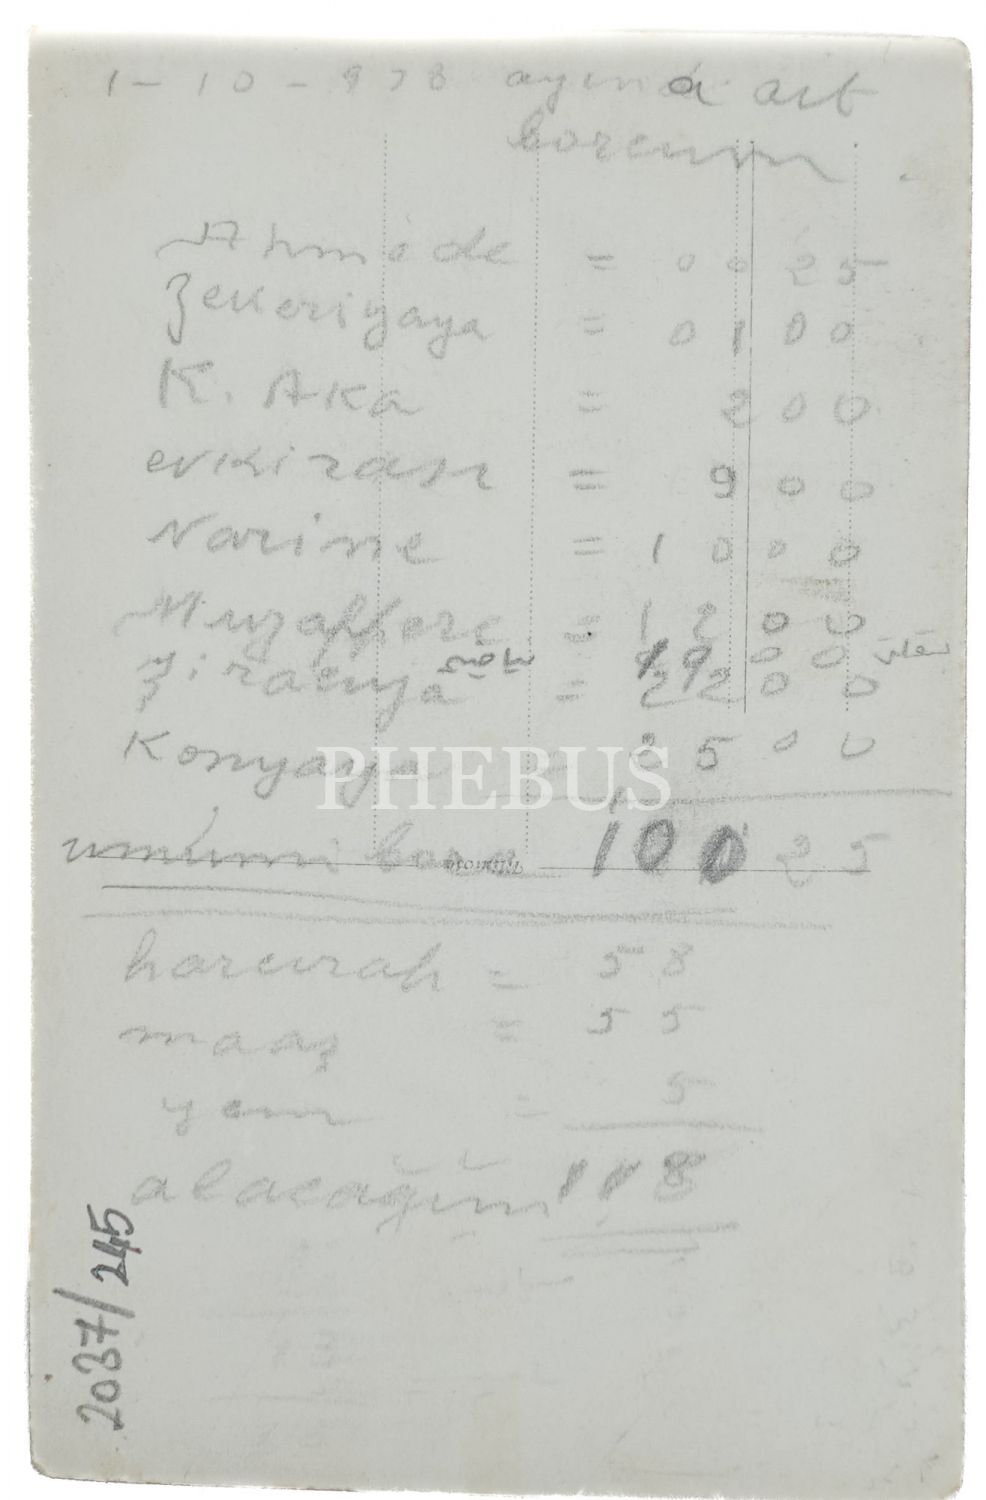 1-10-938 ayına ait
borcum.
Ahmede = 00 25
Zekeriyaya = 01 00
K. Aka = 2 00
evkirası = 9 00
Narine = 10 00
Muzaffere = 12 00
19 00
Ziraatıya = 22 00
Konyaya 25 00
PHEBUS
umumi borc 100 25
harcırah = 58
maaş = 55
yem = 5
alacağım 118
2037/245